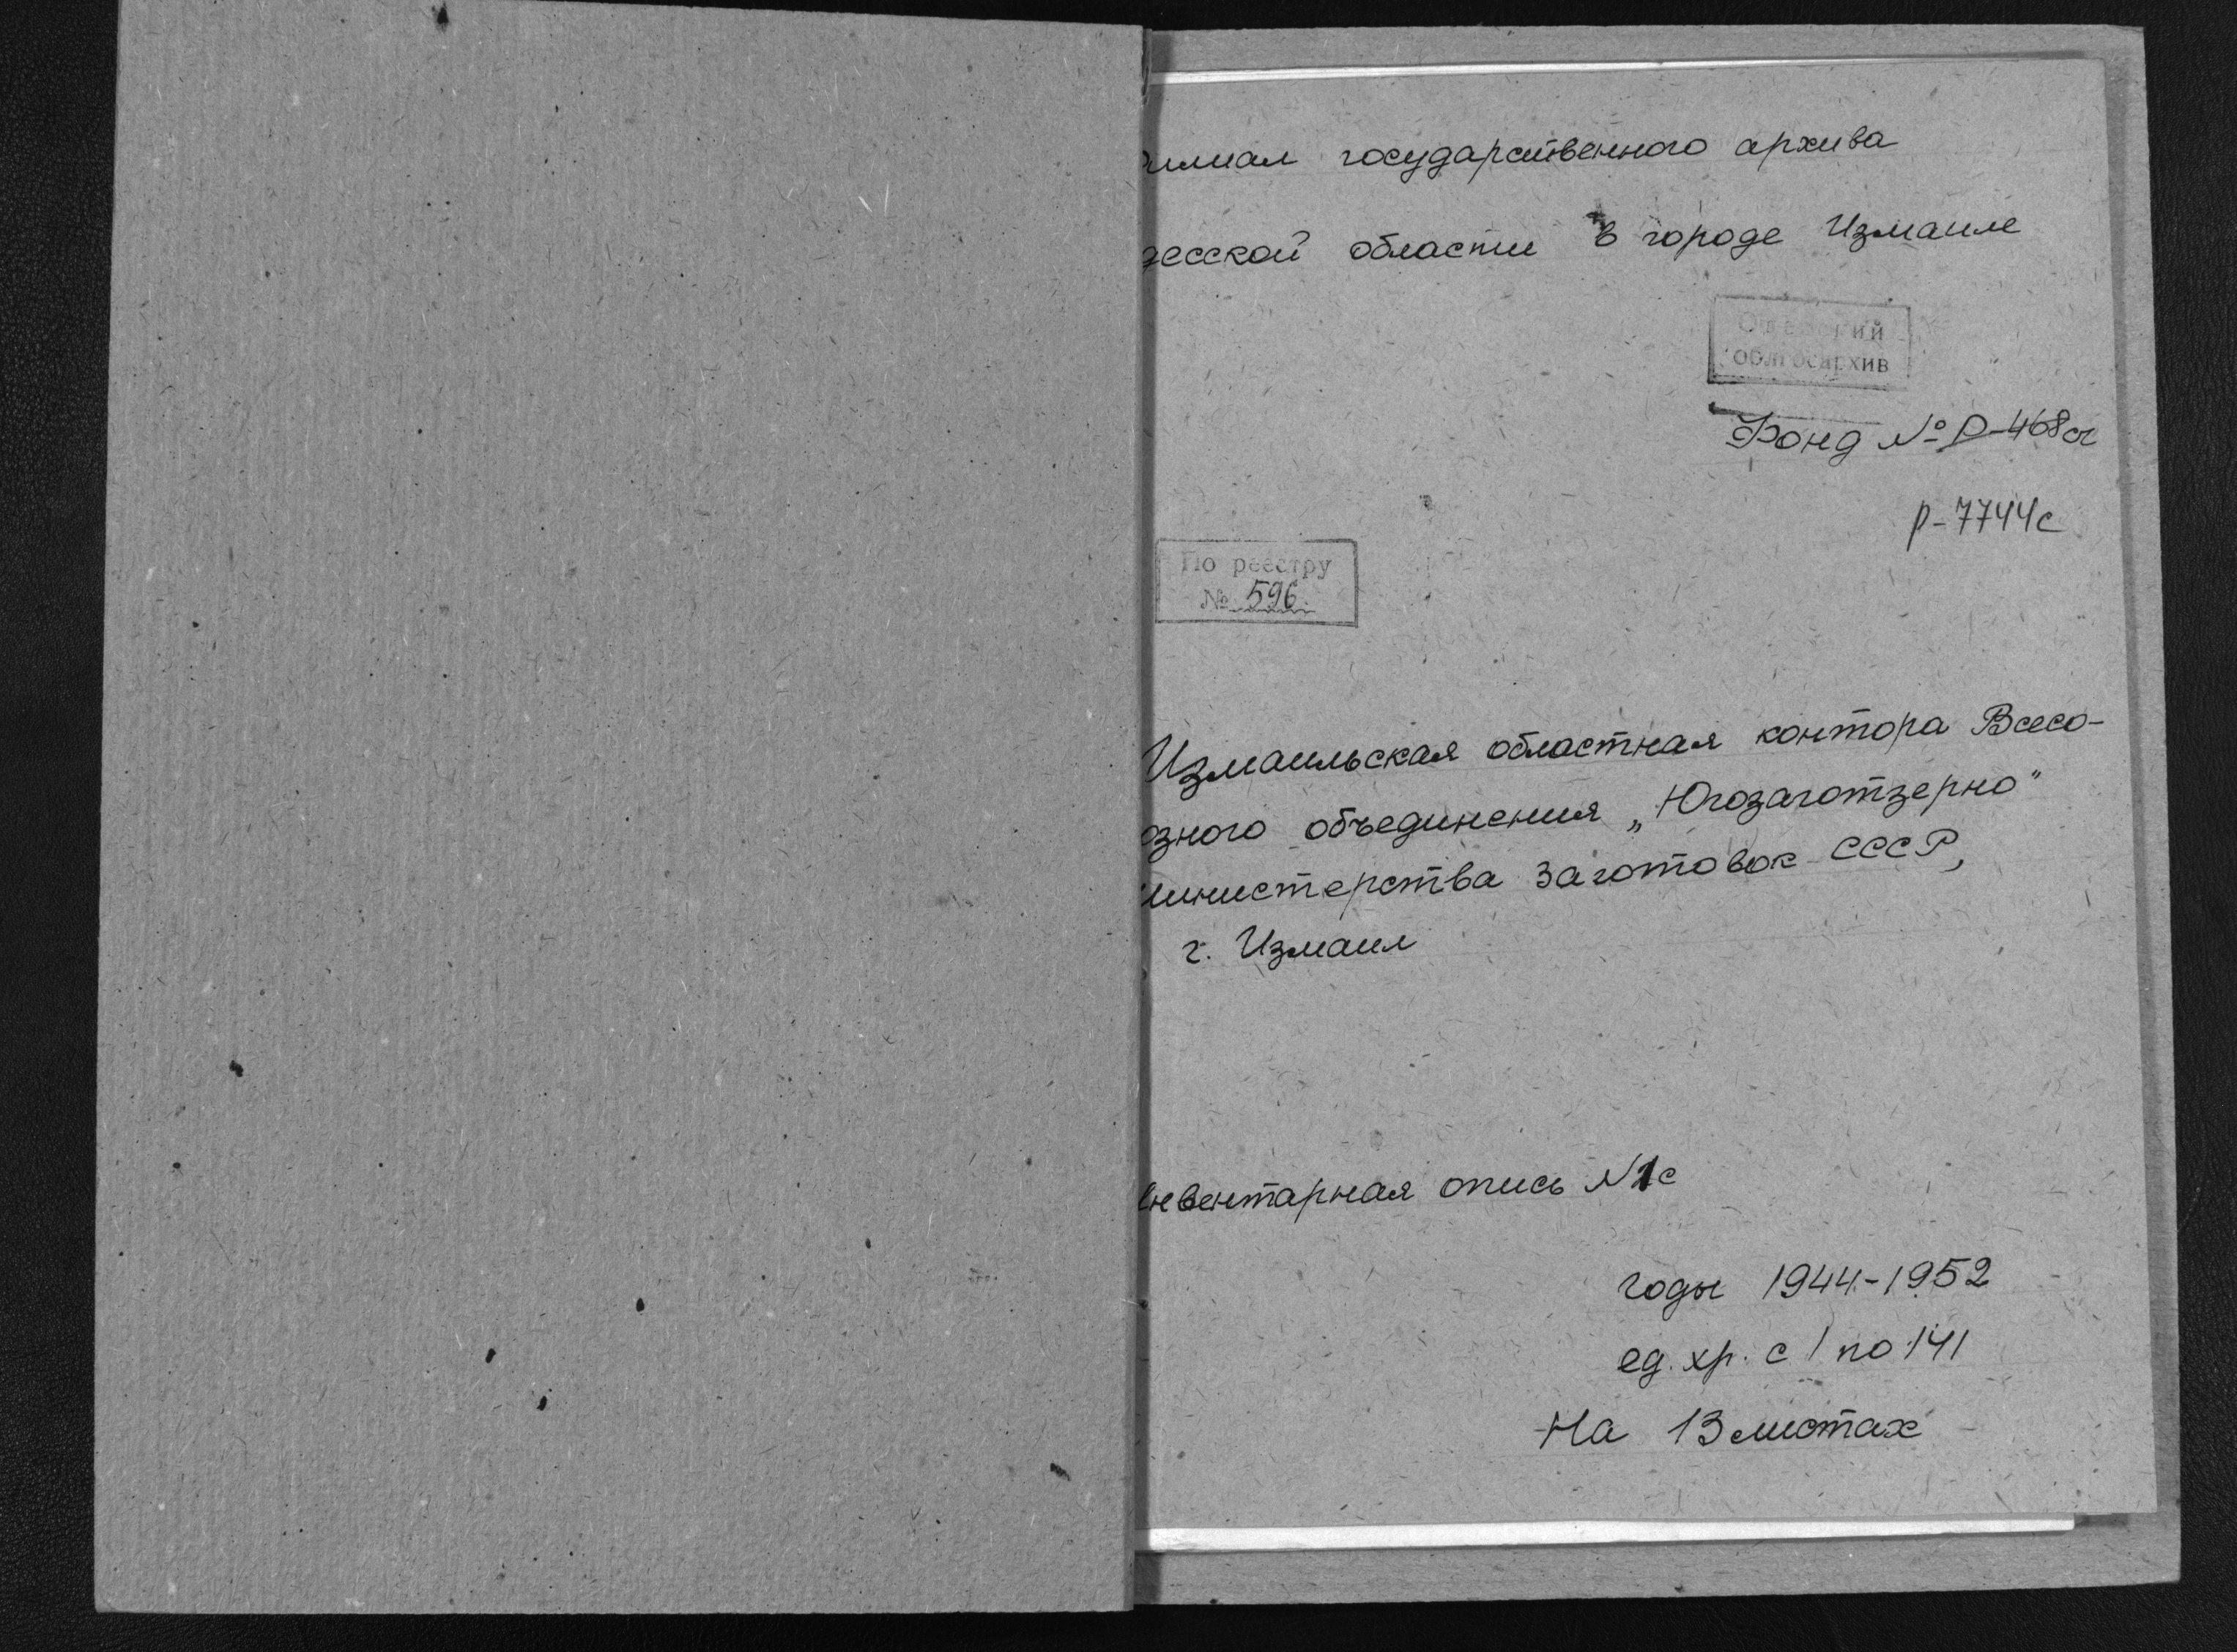 филиал государственного архива
десской области в городе Измаиле
Одесский
облгосархив
Фонд № Р-468с
Р-7744с
По реестру
№ 596
Измаильская областная контора Всесо-
юзного объединения „Югозаготзерно"
министерства заготовок СССР,
г. Измаил
Инвентарная опись N1с
годы 1944-1952
ед. хр. с 1 по 141
На 13 листах